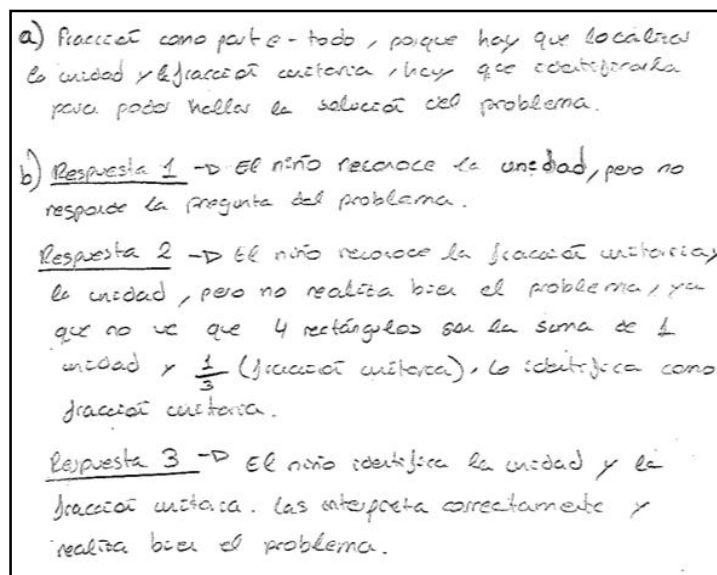 a) Fracción como parte-todo, porque hay que localizar
la unidad y la fracción unitaria, hay que identificarla
para poder hallar la solución del problema.
b) Respuesta 1 → El niño reconoce la unidad, pero no
responde la pregunta del problema.
Respuesta 2 → El niño reconoce la fracción unitaria y
la unidad, pero no realiza bien el problema, ya
que no ve que 4 rectángulos son la suma de 1
unidad y 1/3 (fracción unitaria), lo identifica como
fracción unitaria.
Respuesta 3 → El niño identifica la unidad y la
fracción unitaria. Las interpreta correctamente y
realiza bien el problema.